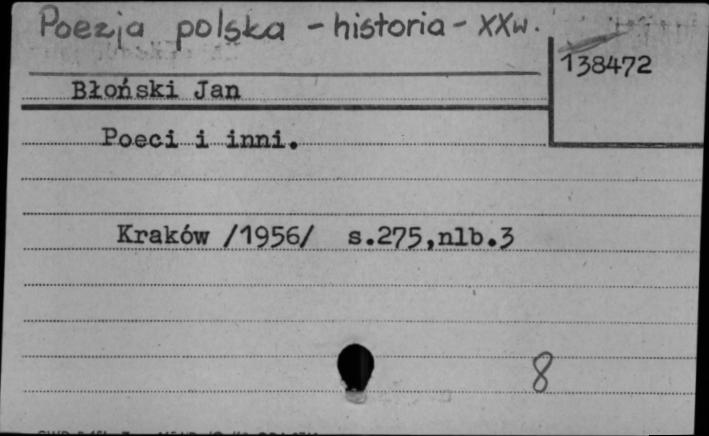 Poezja polska - historia - XXw.
138472
Błoński Jan
Poeci i inni.
Kraków /1956/ s.275,nlb.3
8